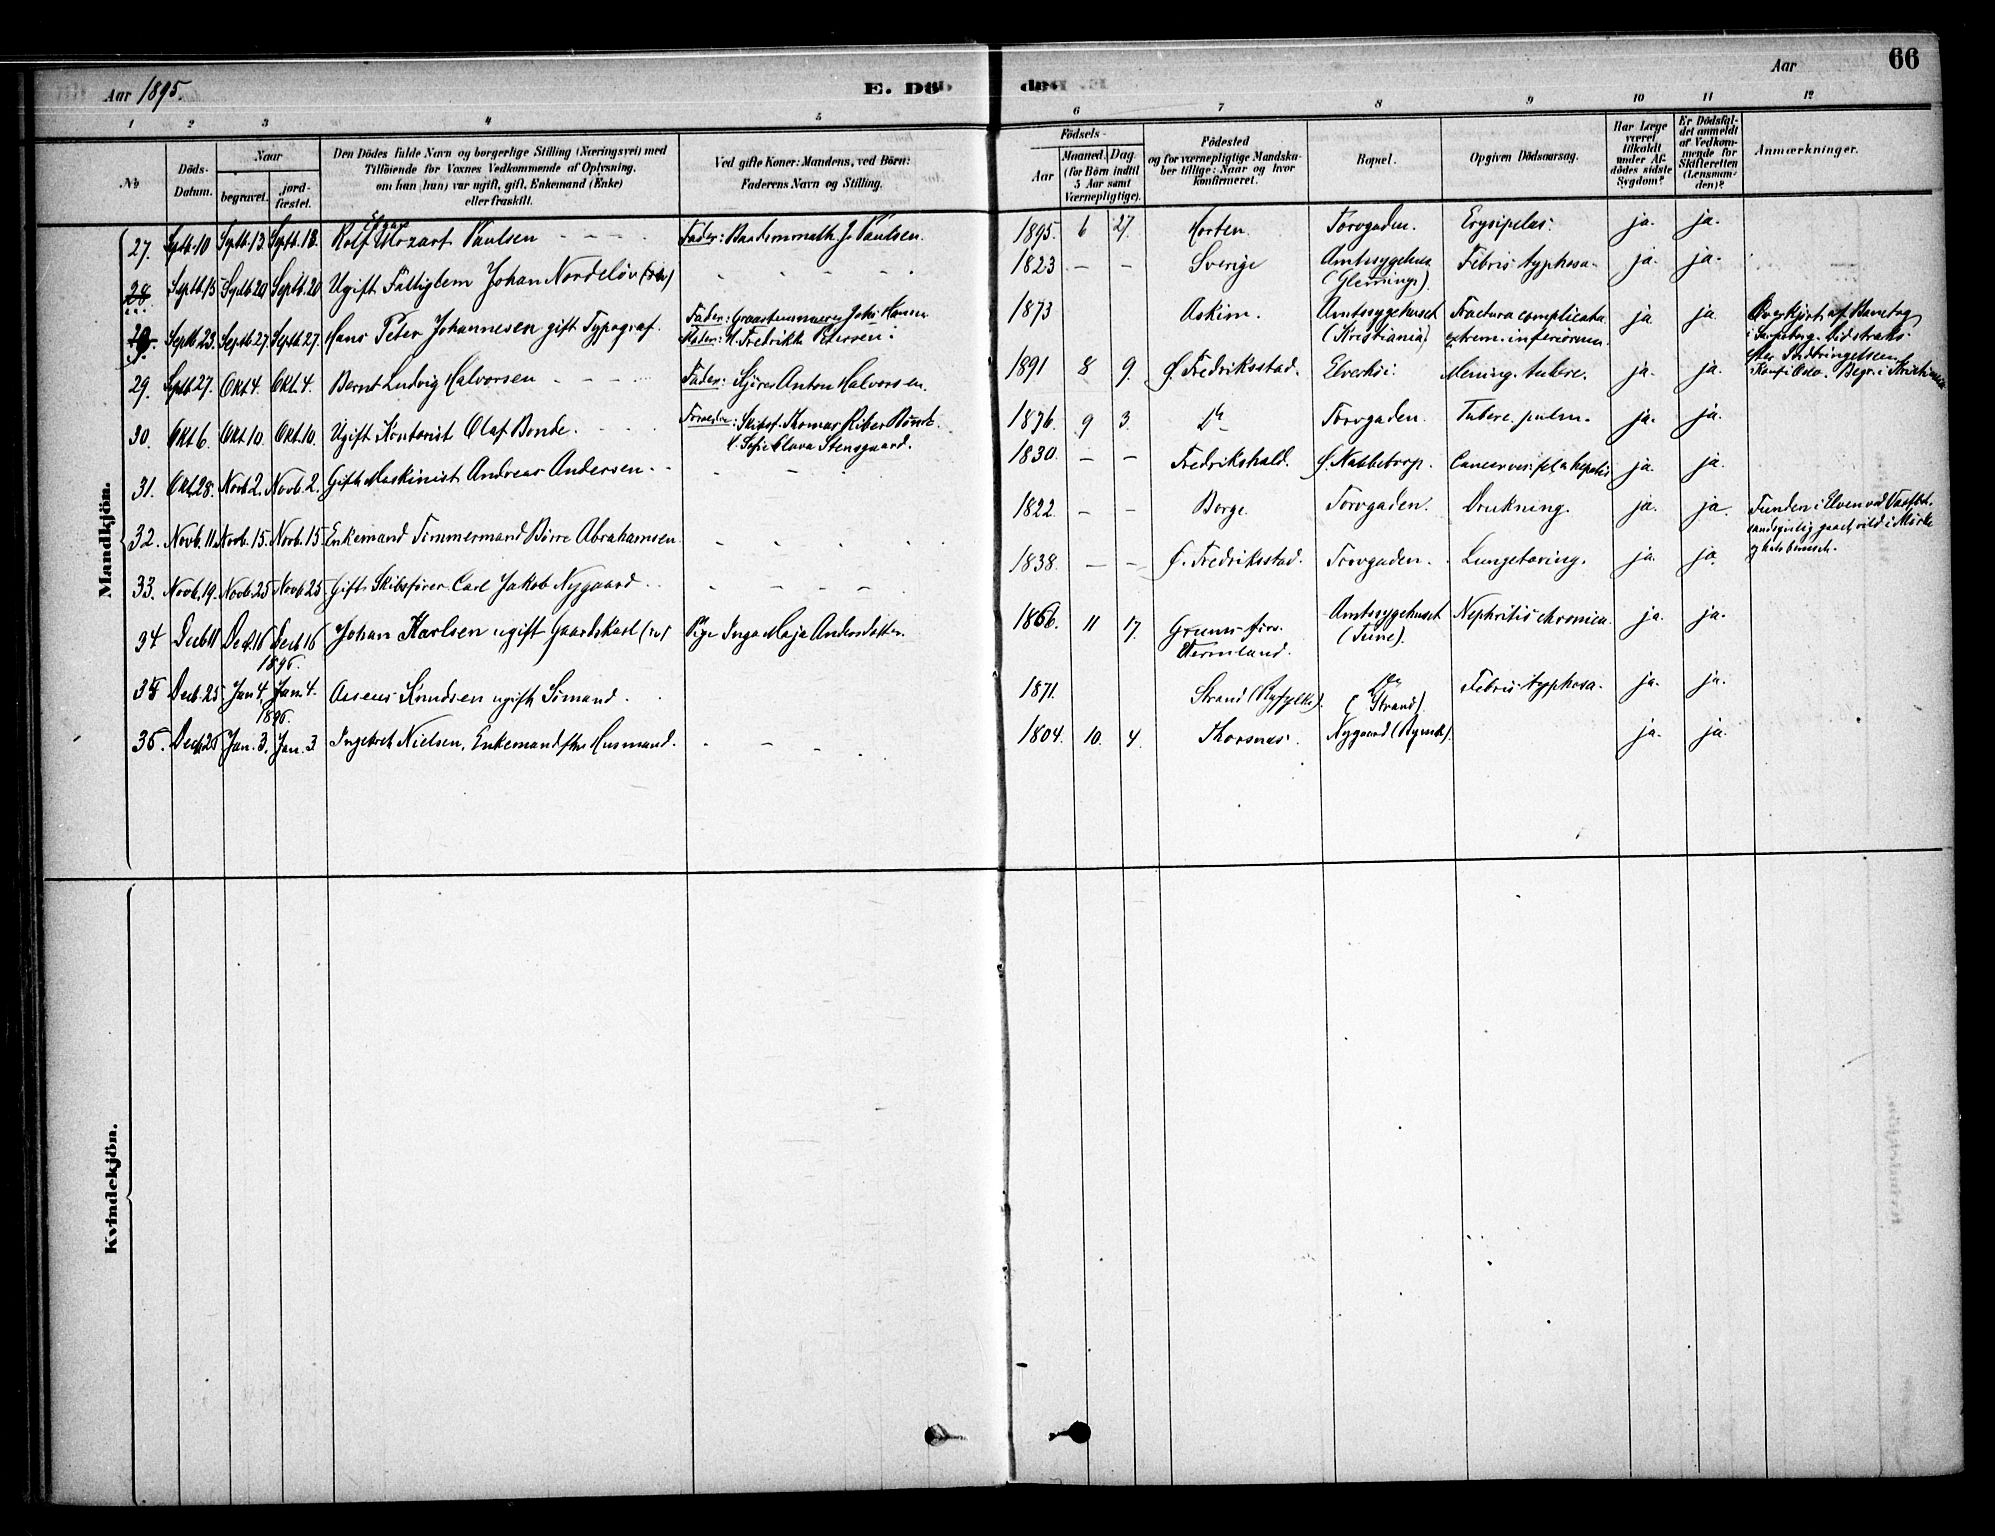 Aar 1895.
E. Dö
døb
Aar
66
1 2 3 4 5
6 7 8 9 10 11 12
No
Döds-Datum.
Naar
begravet.
jord-fæstet.
Den Dödes fulde Navn og borgerlige Stilling (Næringsvei) med
Tilföiende for Voxnes Vedkommende af Oplysning,
om han (hun) var ugift, gift, Enkemand (Enke)
eller fraskilt.
Ved gifte Koner: Mandens, ved Børn:
Faderens Navn og Stilling.
Födsels-
Aar
Maaned.
Dag.
(for Børn indtil
5 Aar samt
Værnepligtige).
Födested
og for værnepligtige Mandska-
ber tillige: Naar og hvor
konfirmeret.
Bopæl.
Opgiven Dödsaarsag.
Har Læge
været
tilkaldt
under Af-
dödes sidste
Sygdom?
Er Dödsfal-
det anmeldt
af Vedkom-
mende for
Skifteretten
(Lensman-
den)?
Anmærkninger.
Mandkjön.
27. Septb. 10 Septb. 13 Septb. 13. Rolf Mozart Paulsen Fader: J. Paulsen. 1895. 6 27. Horten. Torvgaden. Erysipelas. ja. ja.
28. Septb. 15 Septb. 20 Septb. 20 Ugift Fattiglem Johan Nordeløv 1823 Sverige Amtssygehuset (Glemminge) Febris typhosa ja. ja.
Septb. 23. Septb. 27. Septb. 27. Hans Peter Johannesen gift Typograf. Moder: Fredrikke Petersen. 1873 Askim. Amtssygehuset (Kristiania) Fractura complicata extrem. inferiorum ja ja. Overkjørt af Banetog
i Sarpsborg. Død straks
efter Indbringelsen
29. Septb. 27. Okt. 4. Okt. 4. Bernt Ludvig Halvorsen Fader: Anton Halvorsen. 1891 8 9. Ø. Fredriksstad. Mening. tuberc. ja. ja.
30. Okt. 6. Okt. 10. Okt. 10. Ugift Kontorist Olaf Bonde. Thomas Riber Bonde
Sofie Clara Stensgaard. 1876. 9 3. Do Torvgaden. Tuberc. pulm. ja. ja.
31. Okt. 28. Novb. 2. Novb. 2. Gift Maskinist Andreas Andersen 1830. Fredrikshald. Ø. Nabbetorp. Cancer hepatis ja. ja.
32. Novb. 11. Novb. 15. Novb. 15 Enkemand Tømmermand Børre Abrahamsen 1822. Borge. Torvgaden. Drukning. ja. ja. Funden i Elven ved
sandsynlig gaaet vild i Mørke
33. Novb. 19. Novb. 25 Novb. 25 Gift Skibsfører Carl Jakob Nygaard 1838. Ø. Fredriksstad. Torvgaden. Lungetæring. ja. ja.
34 Decb. 11 Decb. 16 Decb. 16 Johan Karlsen ugift Gaardskarl Pige Inga Maja Andersdatter. 1866. 11 17. Vermland. Amtssygehuset (Tune). Nephritis chronica. ja. ja.
1896.
35 Decb. 25 Jan. 4. Jan. 4. Aseus Knudsen ugift Sømand. 1871. Strand (Ryfylke). Do (Strand). Febris typhosa. ja. ja.
1896.
36. Decb. 25 Jan. 3. Jan. 3 Ingebret Nielsen, Enkemand fhv. Husmand. 1804. 10. 4. Thorsnæs. Nygaard ja. ja.
Kvindekjön.